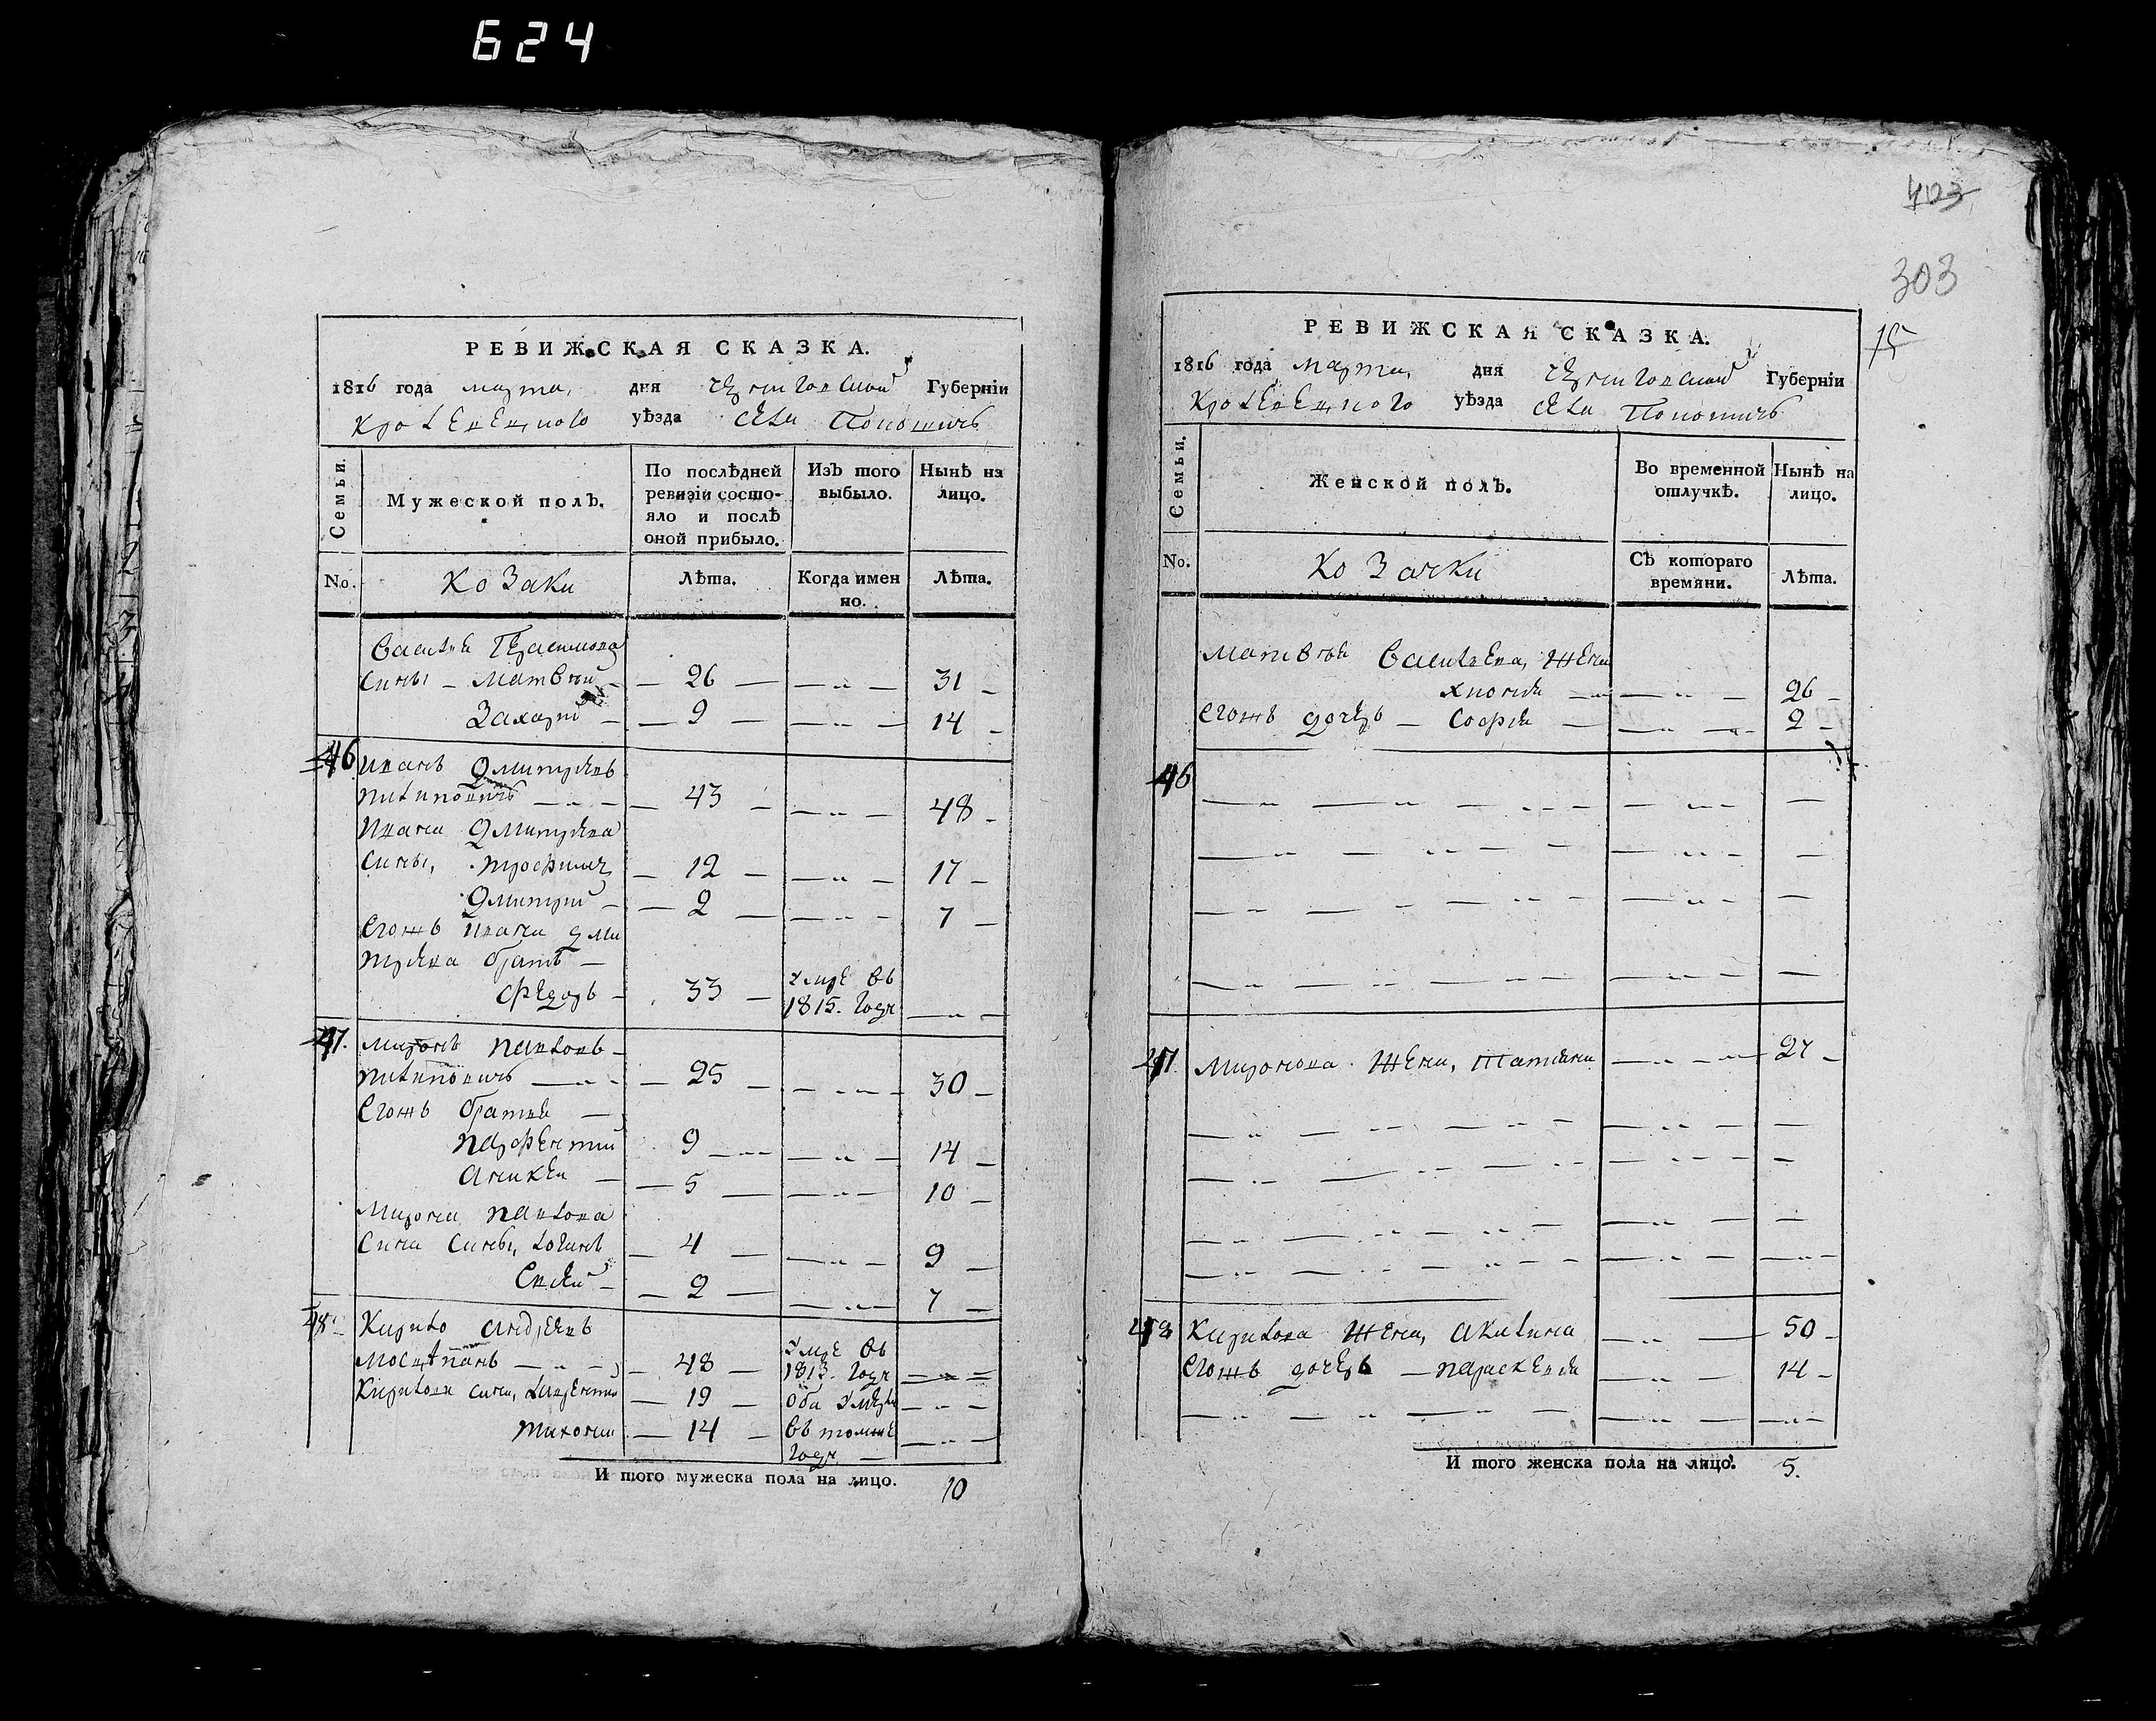 624
РЕВИЖСКАЯ СКАЗКА.
1816 года марта, дня Черниговской Губерніи
Кролевецкого уѣзда села
Семьи.
Мужеской полъ.
По послѣдней ревизіи состо-
яло и послѣ оной прибыло.
Изъ того выбыло.
Нынѣ на лицо.
No.
Козаки
Лѣта.
Когда имен
но.
Лѣта.
Василия
сыны - Матвей 26 31
Захарий 9 14
46 Иванъ Дмитриевъ
Пилиповичъ 43 48
Ивана Дмитриева
сыны, Трофимъ 12 17
Дмитрий 2 7
Егожъ Ивана Дми
триева братъ
Федоръ 33 умре въ 1815. году
47. Миронъ Павловъ
Пилиповичъ 25 30
Егожъ братья
Парфентий 9 14
Аникей 5 10
Мирона Павлова
сина сыны, Логинъ 4 9
2 7
48 Кирило Андреевъ
48 умре въ 1813. году
Кирилови сины, Лаврентий 19 оба умерли
Тихонъ 14 въ томже
году
И того мужеска пола на лицо. 10
403
303
15
РЕВИЖСКАЯ СКАЗКА.
1816 года марта, дня Черниговской Губерніи
Кролевецкого уѣзда села
Семьи.
Женской полъ.
Во временной отлучкѣ.
Нынѣ на лицо.
No.
Козачки
Съ котораго времяни.
Лѣта.
Матвея Васильева, жена
26
Егожъ дочерь - София 2
46
47. Миронова жена, Татияна 27
48 Кирилова жена, Акилина 50
Егожъ дочерь - Параскевия 14
И того женска пола на лицо. 5.